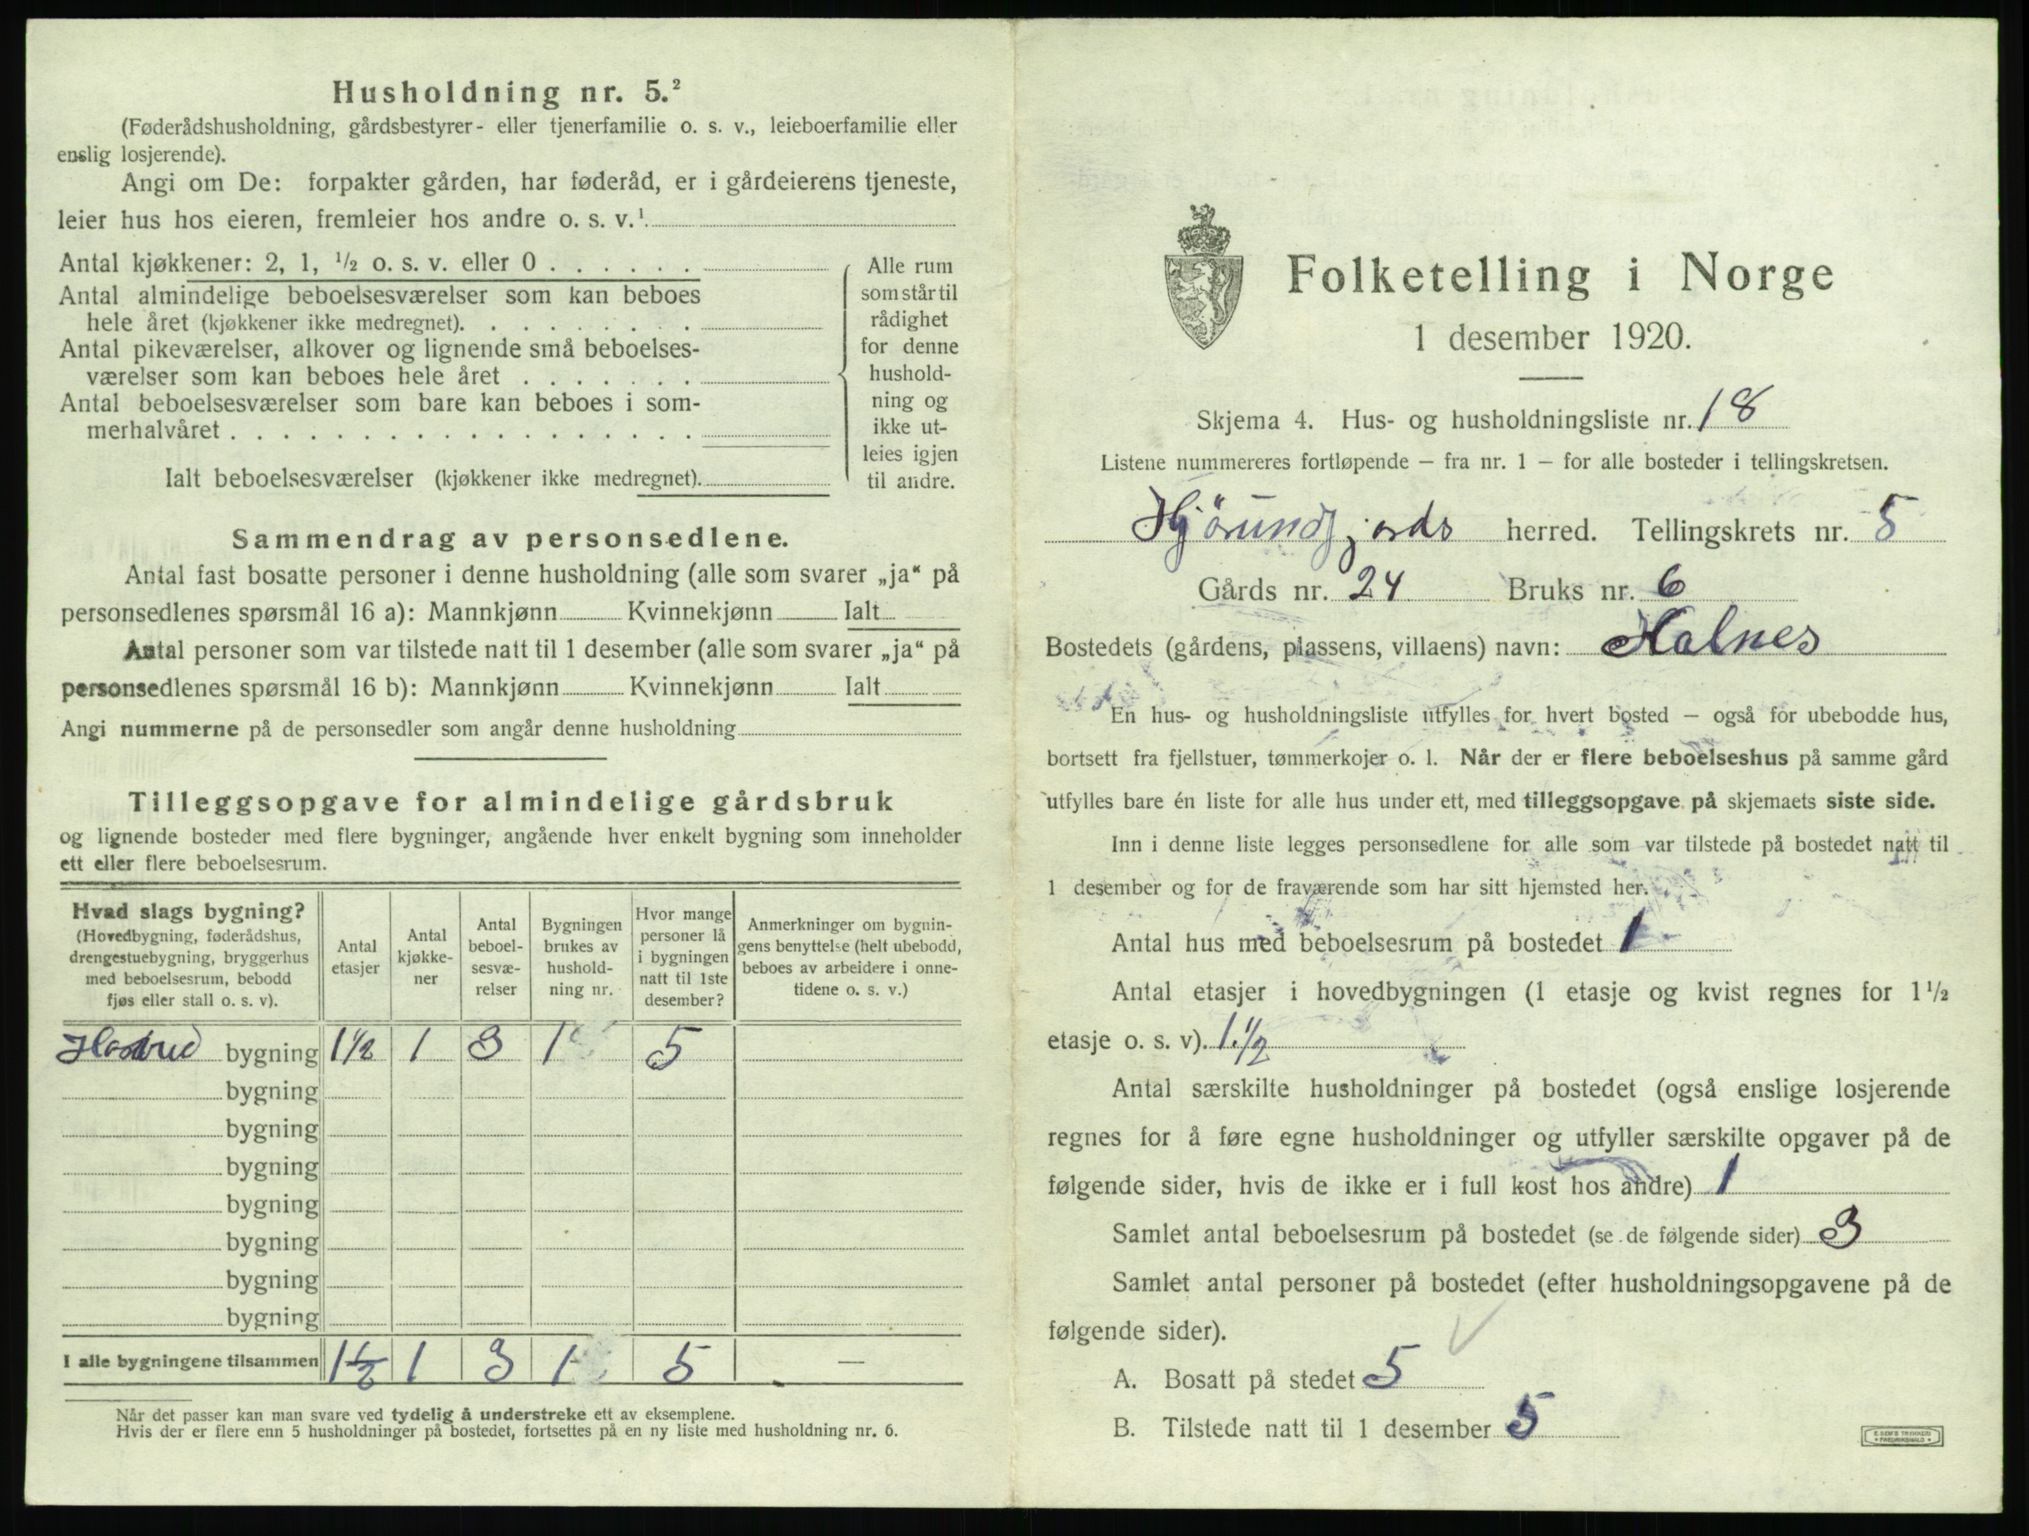 Husholdning nr. 5.²
(Føderådshusholdning, gårdsbestyrer- eller tjenerfamilie o. s. v., leieboerfamilie eller
enslig losjerende).
Angi om De: forpakter gården, har føderåd, er i gårdeierens tjeneste,
leier hus hos eieren, fremleier hos andre o. s. v.¹
Antal kjøkkener: 2, 1, ½ o. s. v. eller 0 . . . . . .
Antal almindelige beboelsesværelser som kan beboes
hele året (kjøkkener ikke medregnet). . . . . . . . .
Antal pikeværelser, alkover og lignende små beboelses-
værelser som kan beboes hele året . . . . . . .
Antal beboelsesværelser som bare kan beboes i som-
merhalvåret . . . . . . . . . . . . . . . . . .
Ialt beboelsesværelser (kjøkkener ikke medregnet).
Alle rum
som står til
rådighet
for denne
hushold-
ning og
ikke ut-
leies igjen
til andre.
Sammendrag av personsedlene.
Antal fast bosatte personer i denne husholdning (alle som svarer „ja“ på
personsedlenes spørsmål 16 a): Mannkjønn Kvinnekjønn Ialt
Antal personer som var tilstede natt til 1 desember (alle som svarer „ja“ på
personsedlenes spørsmål 16 b): Mannkjønn Kvinnekjønn Ialt
Angi nummerne på de personsedler som angår denne husholdning
Tilleggsopgave for almindelige gårdsbruk
og lignende bosteder med flere bygninger, angående hver enkelt bygning som inneholder
ett eller flere beboelsesrum.
Hvad slags bygning?
(Hovedbygning, føderådshus,
drengestuebygning, bryggerhus
med beboelsesrum, bebodd
fjøs eller stall o. s. v).
Antal
etasjer
Antal
kjøkke-
ner
Antal
beboel-
sesvæ-
relser
Bygningen
brukes av
hushold-
ning nr.
Hvor mange
personer lå
i bygningen
natt til 1ste
desember?
Anmerkninger om bygnin-
gens benyttelse (helt ubebodd,
beboes av arbeidere i onne-
tidene o. s. v.)
bygning 1½ 1 3 1 5
bygning
bygning
bygning
bygning
bygning
bygning
bygning
I alle bygningene tilsammen 1½ 1 3 1 5 —
Når det passer kan man svare ved tydelig å understreke ett av eksemplene.
Hvis der er flere enn 5 husholdninger på bostedet, fortsettes på en ny liste med husholdning nr. 6.
Folketelling i Norge
1 desember 1920.
Skjema 4. Hus- og husholdningsliste nr. 18
Listene nummereres fortløpende — fra nr. 1 — for alle bosteder i tellingskretsen.
Hjörundfjords herred. Tellingskrets nr. 5
Gårds nr. 24 Bruks nr. 6
Bostedets (gårdens, plassens, villaens) navn: Kalnes
En hus- og husholdningsliste utfylles for hvert bosted — også for ubebodde hus,
bortsett fra fjellstuer, tømmerkojer o. l. Når der er flere beboelseshus på samme gård
utfylles bare én liste for alle hus under ett, med tilleggsopgave på skjemaets siste side.
Inn i denne liste legges personsedlene for alle som var tilstede på bostedet natt til
1 desember og for de fraværende som har sitt hjemsted her.
Antal hus med beboelsesrum på bostedet 1
Antal etasjer i hovedbygningen (1 etasje og kvist regnes for 1½
etasje o. s. v). 1.½
Antal særskilte husholdninger på bostedet (også enslige losjerende
regnes for å føre egne husholdninger og utfyller særskilte opgaver på de
følgende sider, hvis de ikke er i full kost hos andre) 1
Samlet antal beboelsesrum på bostedet (se de følgende sider) 3
Samlet antal personer på bostedet (efter husholdningsopgavene på de
følgende sider).
A. Bosatt på stedet 5
B. Tilstede natt til 1 desember 5